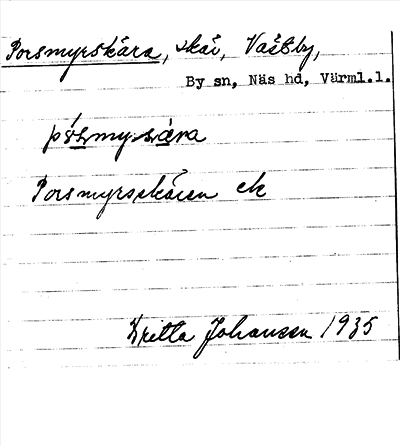 Porsmyrskära, skär, Västby,
By sn, Näs hd, Värml.l.
Porsmyrsskären ek
Britta Johansson 1935